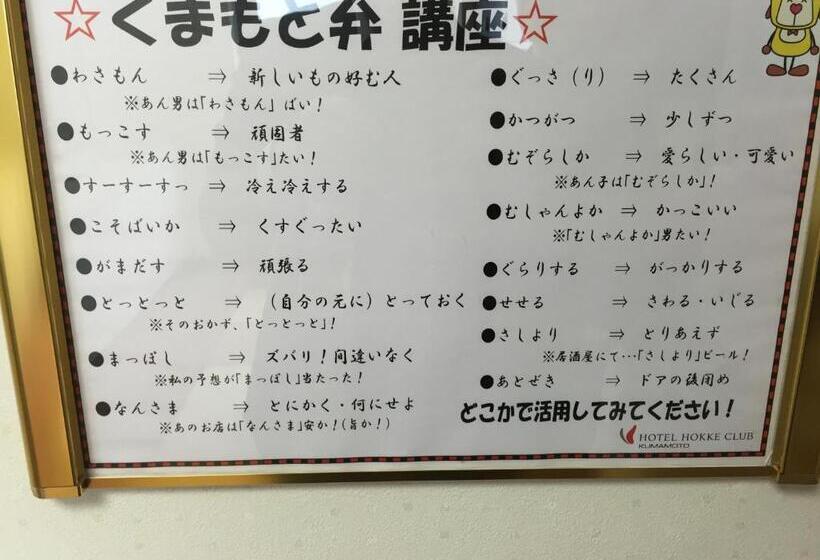 ☆くまもと弁 講座☆
●わさもん ⇒ 新しいもの好む人
※あん男は「わさもん」ばい！
●もっこす ⇒ 頑固者
※あん男は「もっこす」たい！
●すーすーすっ ⇒ 冷え冷えする
●こそばいか ⇒ くすぐったい
●がまだす ⇒ 頑張る
●とっとっと ⇒ （自分の元に）とっておく
※そのおかず、「とっとっと」！
●まっぽし ⇒ ズバリ！間違いなく
※私の予想が「まっぽし」当たった！
●なんさま ⇒ とにかく・何にせよ
※あのお店は「なんさま」安か！（旨か！）
●ぐっさ（り） ⇒ たくさん
●かつがつ ⇒ 少しずつ
●むぞらしか ⇒ 愛らしい・可愛い
※あん子は「むぞらしか」！
●むしゃんよか ⇒ かっこいい
※「むしゃんよか」男たい！
●ぐらりする ⇒ がっかりする
●せせる ⇒ さわる・いじる
●さしより ⇒ とりあえず
※居酒屋にて…「さしより」ビール！
●あとぜき ⇒ ドアの後閉め
どこかで活用してみてください！
HOTEL HOKKE CLUB
KUMAMOTO